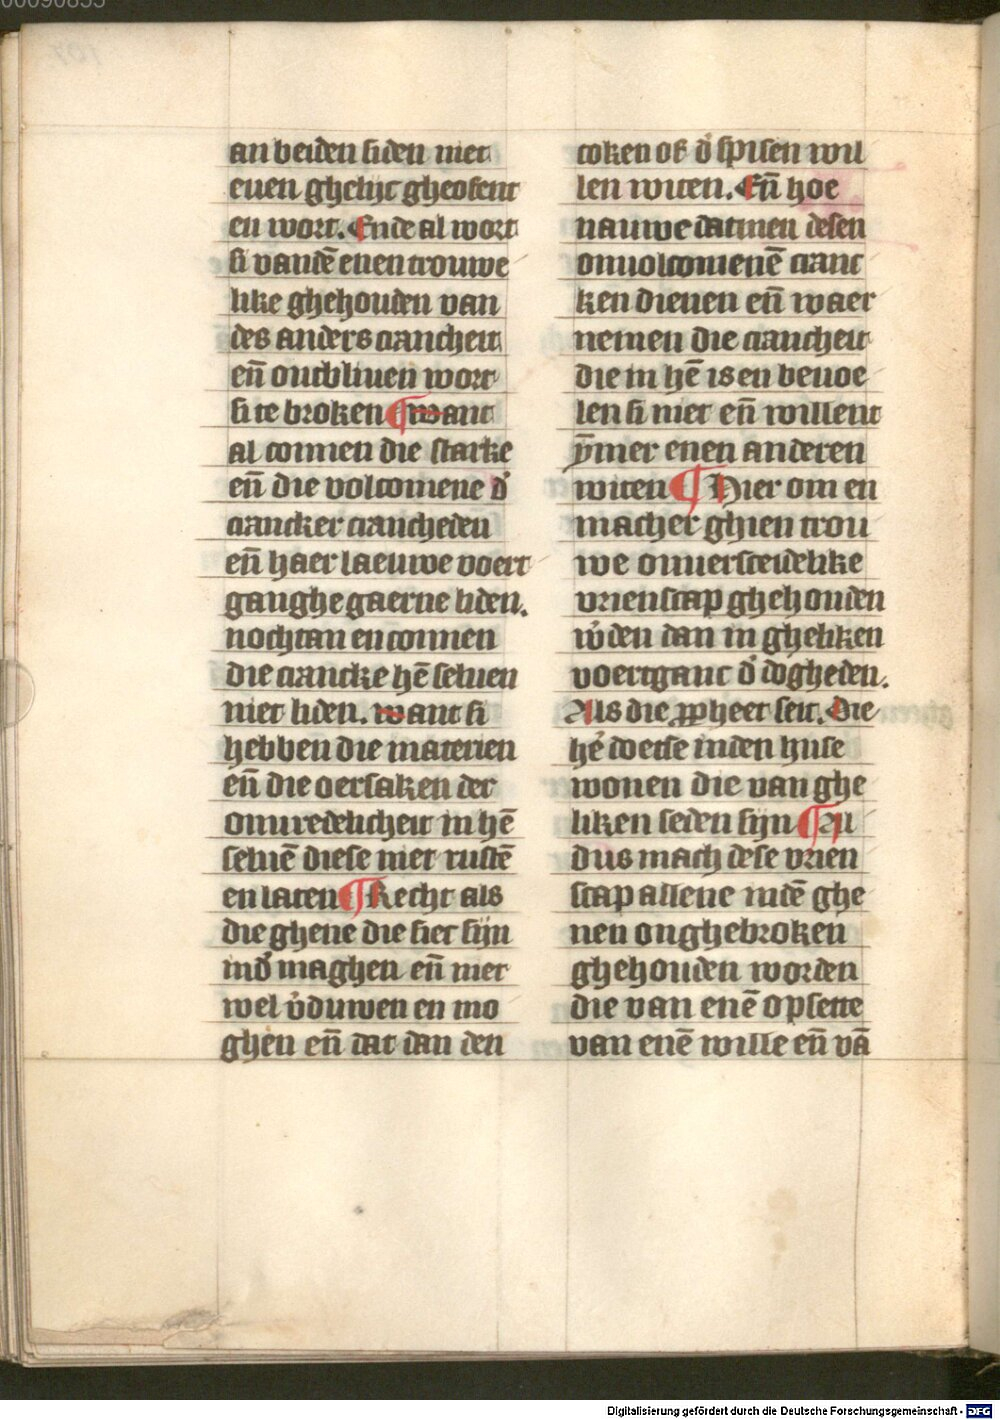 an beiden siden niet
euen ghelijc gheoefent
en wort. Ende al wort
si vandē enen trouwe
like ghehouden van
des anders cranc heit
en̄ ontbliuen wort
si te broken ¶ want
al connen die starke
en̄ die volcomene d'
crancker crancheden
en̄ haer laeuwe voert
ganghe gaerne liden.
nochtan en connen
die crancke hē seluen
niet liden. want si
hebben die materien
en̄ die oersaken der
onuredelicheit in hē
seluē diese niet rustē
en laten ¶ Recht als
die ghene die siec sijn
ind' maghen en̄ niet
wel v'duwen en mo
ghen en̄ dat dan den
coken of d' spisen wil
len witen. En̄ hoe
nauwe datmen desen
onuolcomenē cranc
ken dienen en̄ waer
nemen die crancheit
die in hē is en beuoe
len si niet en̄ willent
ȳmer enen anderen
witen ¶ Hier om en
mach er ghien trou
we onuersceidelike
vrienscap ghehouden
w'den dan in gheliken
voertganc d' dogheden.
Als die ꝓpheet seit. Die
he' doetse inden huse
wonen die van ghe
liken seden sijn ¶ Al
dus mach dese vrien
scap allene indē ghe
nen onghebroken
ghehouden worden
die van enē opsette
van enē wille en̄ vā
Digitalisierung gefördert durch die Deutsche Forschungsgemeinschaft - DFG